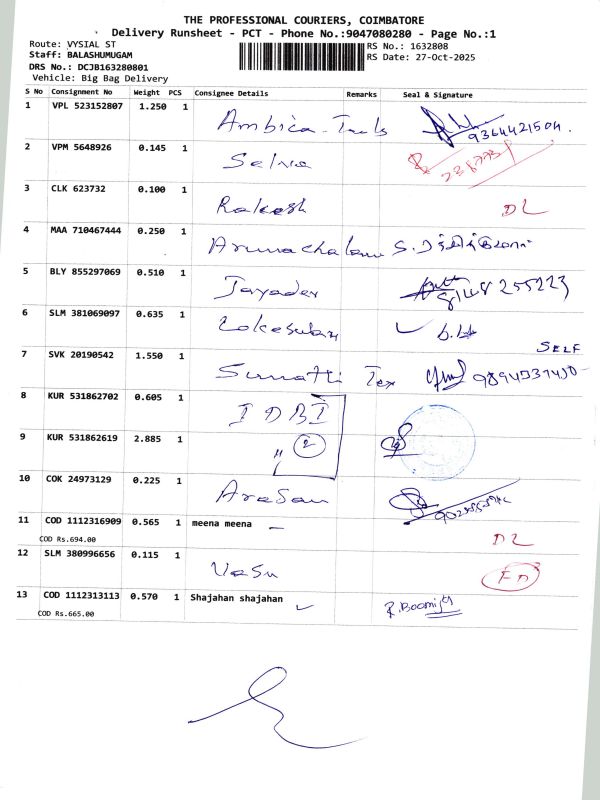 THE PROFESSIONAL COURIERS, COIMBATORE
Delivery Runsheet - PCT - Phone No.:9047080280 - Page No.:1
Route: VYSIAL ST
RS No.: 1632808
Staff: BALASHUMUGAM
RS Date: 27-Oct-2025
DRS No.: DCJB163280801
Vehicle: Big Bag Delivery
S No Consignment No Weight PCS Consignee Details Remarks Seal & Signature
1 VPL 523152807 1.250 1 Ambica
2 VPM 5648926 0.145 1 Selva
3 CLK 623732 0.100 1 Rakesh DL
4 MAA 710467444 0.250 1 Arunachalam S.
5 BLY 855297069 0.510 1 Jayadev
6 SLM 381069097 0.635 1
SELF
7 SVK 20190542 1.550 1 Sumathi Tex
8 KUR 531862702 0.605 1 IDBI
9 KUR 531862619 2.885 1 " 2
10 COK 24973129 0.225 1 Arasan
11 COD 1112316909 0.565 1 meena meena
COD Rs.694.00
DL
12 SLM 380996656 0.115 1 Vasu FD
13 COD 1112313113 0.570 1 Shajahan shajahan
COD Rs.665.00